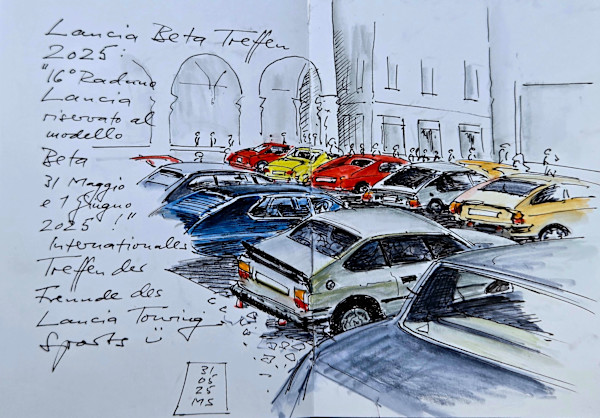 Lancia Beta Treffen
2025:
"16° Raduno
Lancia
riservato al
modello
Beta
31 Maggio
e 1 Giugno
2025"!"
Internationalles
Treffen der
Freunde des
Lancia Touring
Sports
31
05
25
MS